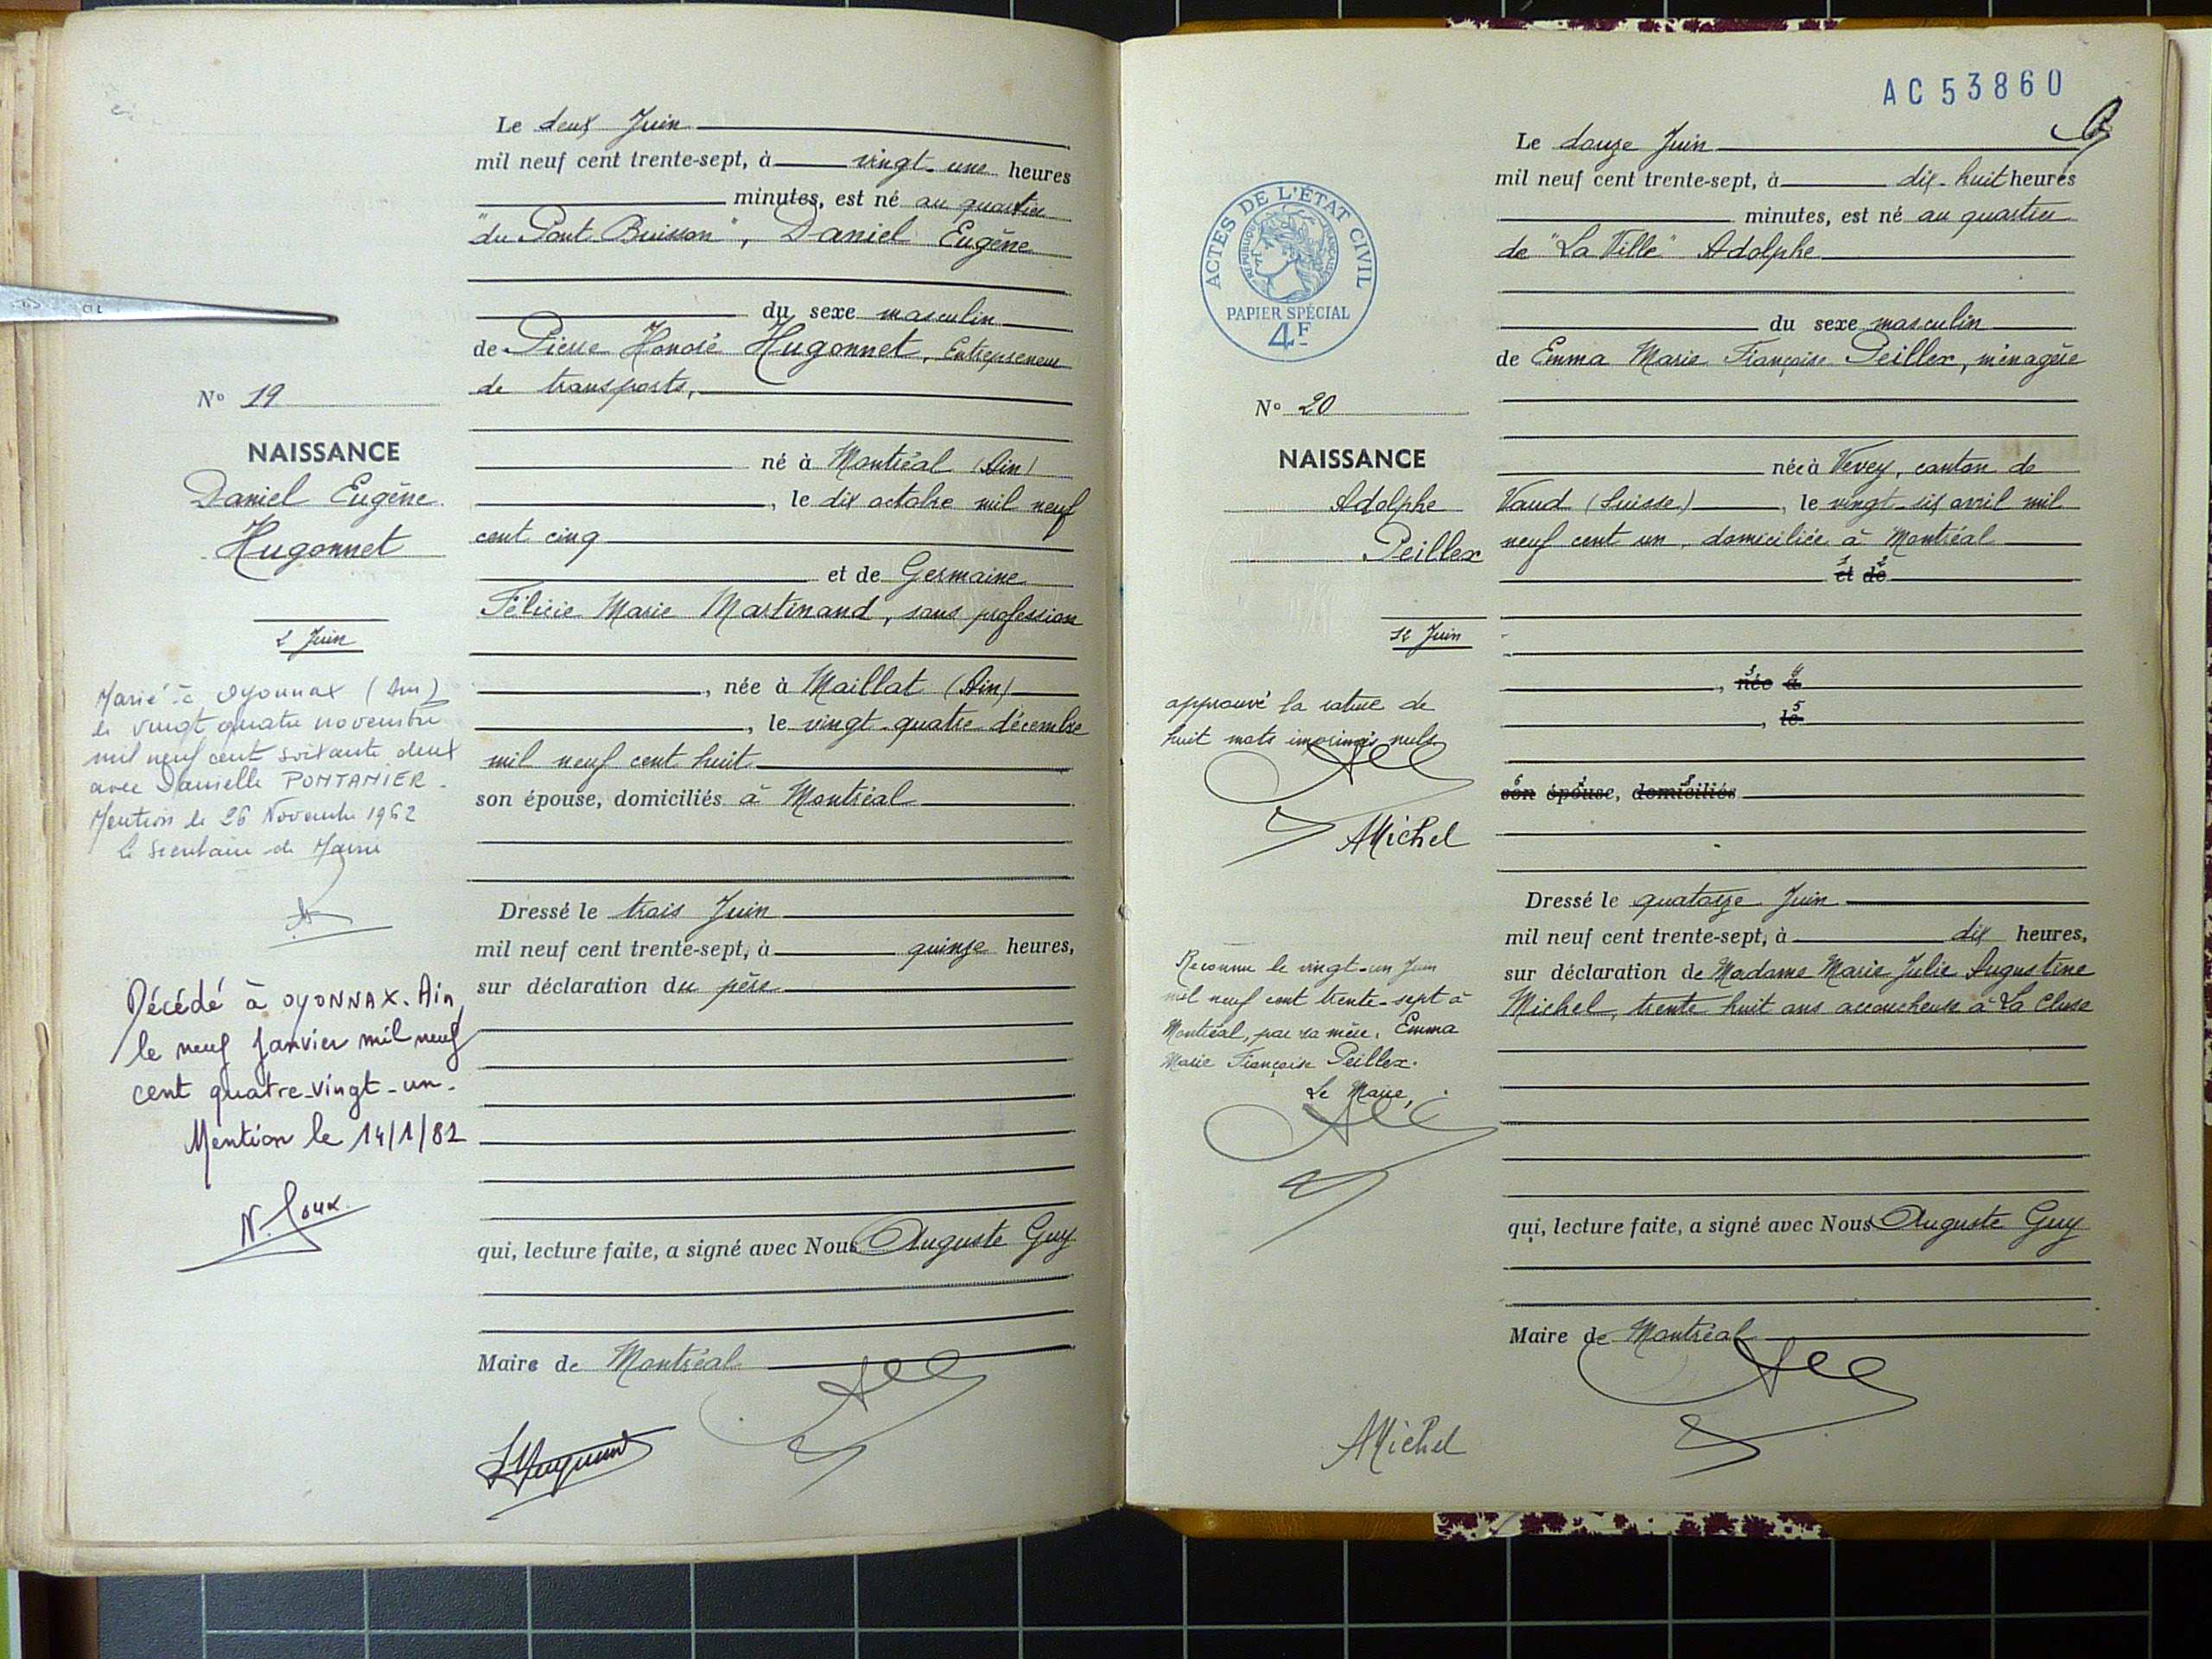 Le deux Juin
mil neuf cent trente-sept, à vingt-une heures
minutes, est né au quartier
"du Pont Buisson", Daniel Eugène
du sexe masculin
de Pierre Honoré Hugonnet, Entrepreneur
de transports,
né à Montréal (Ain)
, le dix octobre mil neuf
cent cinq
et de Germaine
Félicie Marie Martinand, sans profession
, née à Maillat (Ain)
, le vingt-quatre décembre
mil neuf cent huit
son épouse, domiciliés à Montréal
Dressé le trois Juin
mil neuf cent trente-sept, à quinze heures,
sur déclaration du père
qui, lecture faite, a signé avec Nous Auguste Guy
Maire de Montréal
N° 19
NAISSANCE
Daniel Eugène
Hugonnet
2 Juin
Marié à Oyonnax (Ain)
le vingt quatre novembre
mil neuf cent soixante deux
avec Danielle PONTANIER.
Mention le 26 Novembre 1962
le Secrétaire de Mairie
Décédé à OYONNAX. Ain,
le neuf janvier mil neuf
cent quatre-vingt-un.
Mention le 14/1/82
AC 53860
Le douze Juin
mil neuf cent trente-sept, à dix-huit heures
minutes, est né au quartier
de "La Ville" Adolphe
du sexe masculin
de Emma Marie Françoise Peillex, ménagère
née à Vevey, canton de
Vaud (Suisse), le vingt-six avril mil
neuf cent un, domiciliée à Montréal
1 2
et de
3 4
, née à
5
, le
6 7 8
son épouse, domiciliés
Dressé le quatorze Juin
mil neuf cent trente-sept, à dix heures,
sur déclaration de Madame Marie Julie Augustine
Michel, trente huit ans accoucheuse à La Cluse
qui, lecture faite, a signé avec Nous Auguste Guy
Maire de Montréal
AMichel
ACTES DE L'ÉTAT CIVIL
RÉPUBLIQUE FRANÇAISE
PAPIER SPÉCIAL
4F
N° 20
NAISSANCE
Adolphe
Peillex
12 Juin
approuvé la rature de
huit mots imprimés nuls
AMichel
Reconnu le vingt-un Juin
mil neuf cent trente-sept à
Montréal, par sa mère, Emma
Marie Françoise Peillex.
Le Maire,